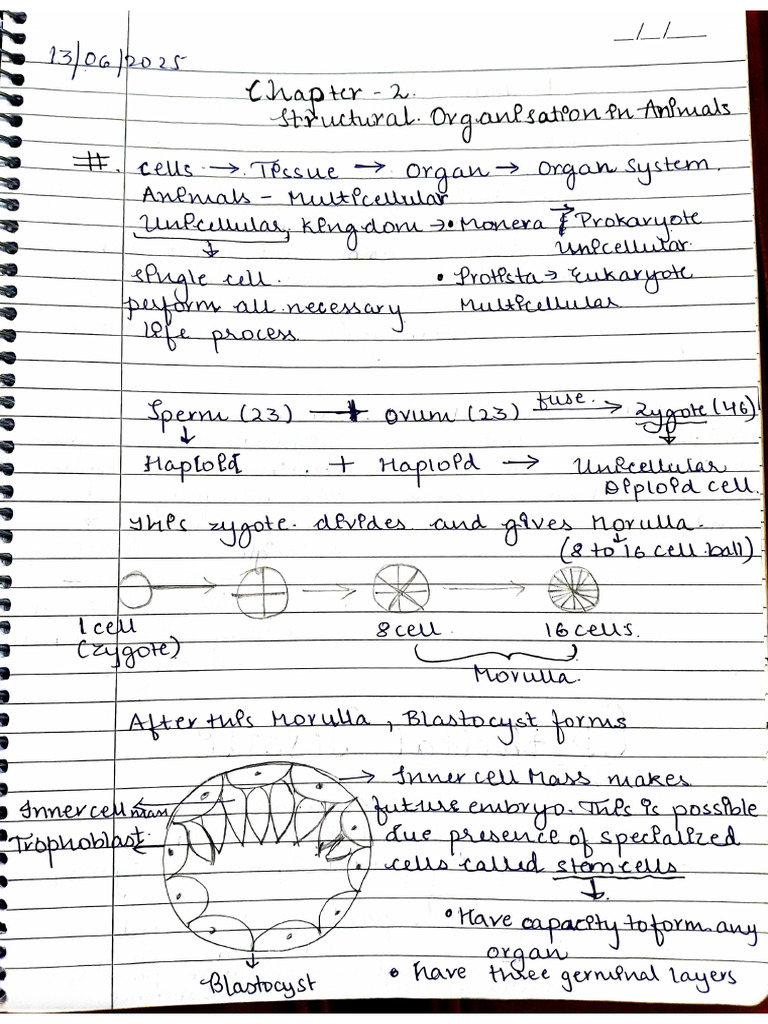 __/__/__
13/06/2025
Chapter - 2.
Structural Organisation in Animals
#. cells → Tissue → organ → organ system.
Animals - Multicellular
Unicellular, kingdom → • Monera → Prokaryote
Unicellular.
↓
single cell. • Protista → Eukaryote
perform all necessary Multicellular
life process.
Sperm (23) + ovum (23) fuse. → zygote (46)
↓ ↓
Haploid + Haploid → Unicellular
Diploid cell.
This zygote divides and gives Morulla.
(8 to 16 cell ball)
1 cell 8 cell 16 cells.
(zygote)
Morulla.
After this Morulla, Blastocyst forms
→ Inner cell Mass makes
Inner cell mass future embryo. This is possible
Trophoblast due presence of specialized
cells called stem cells
↓
• Have capacity to form any
organ
Blastocyst • have three germinal layers